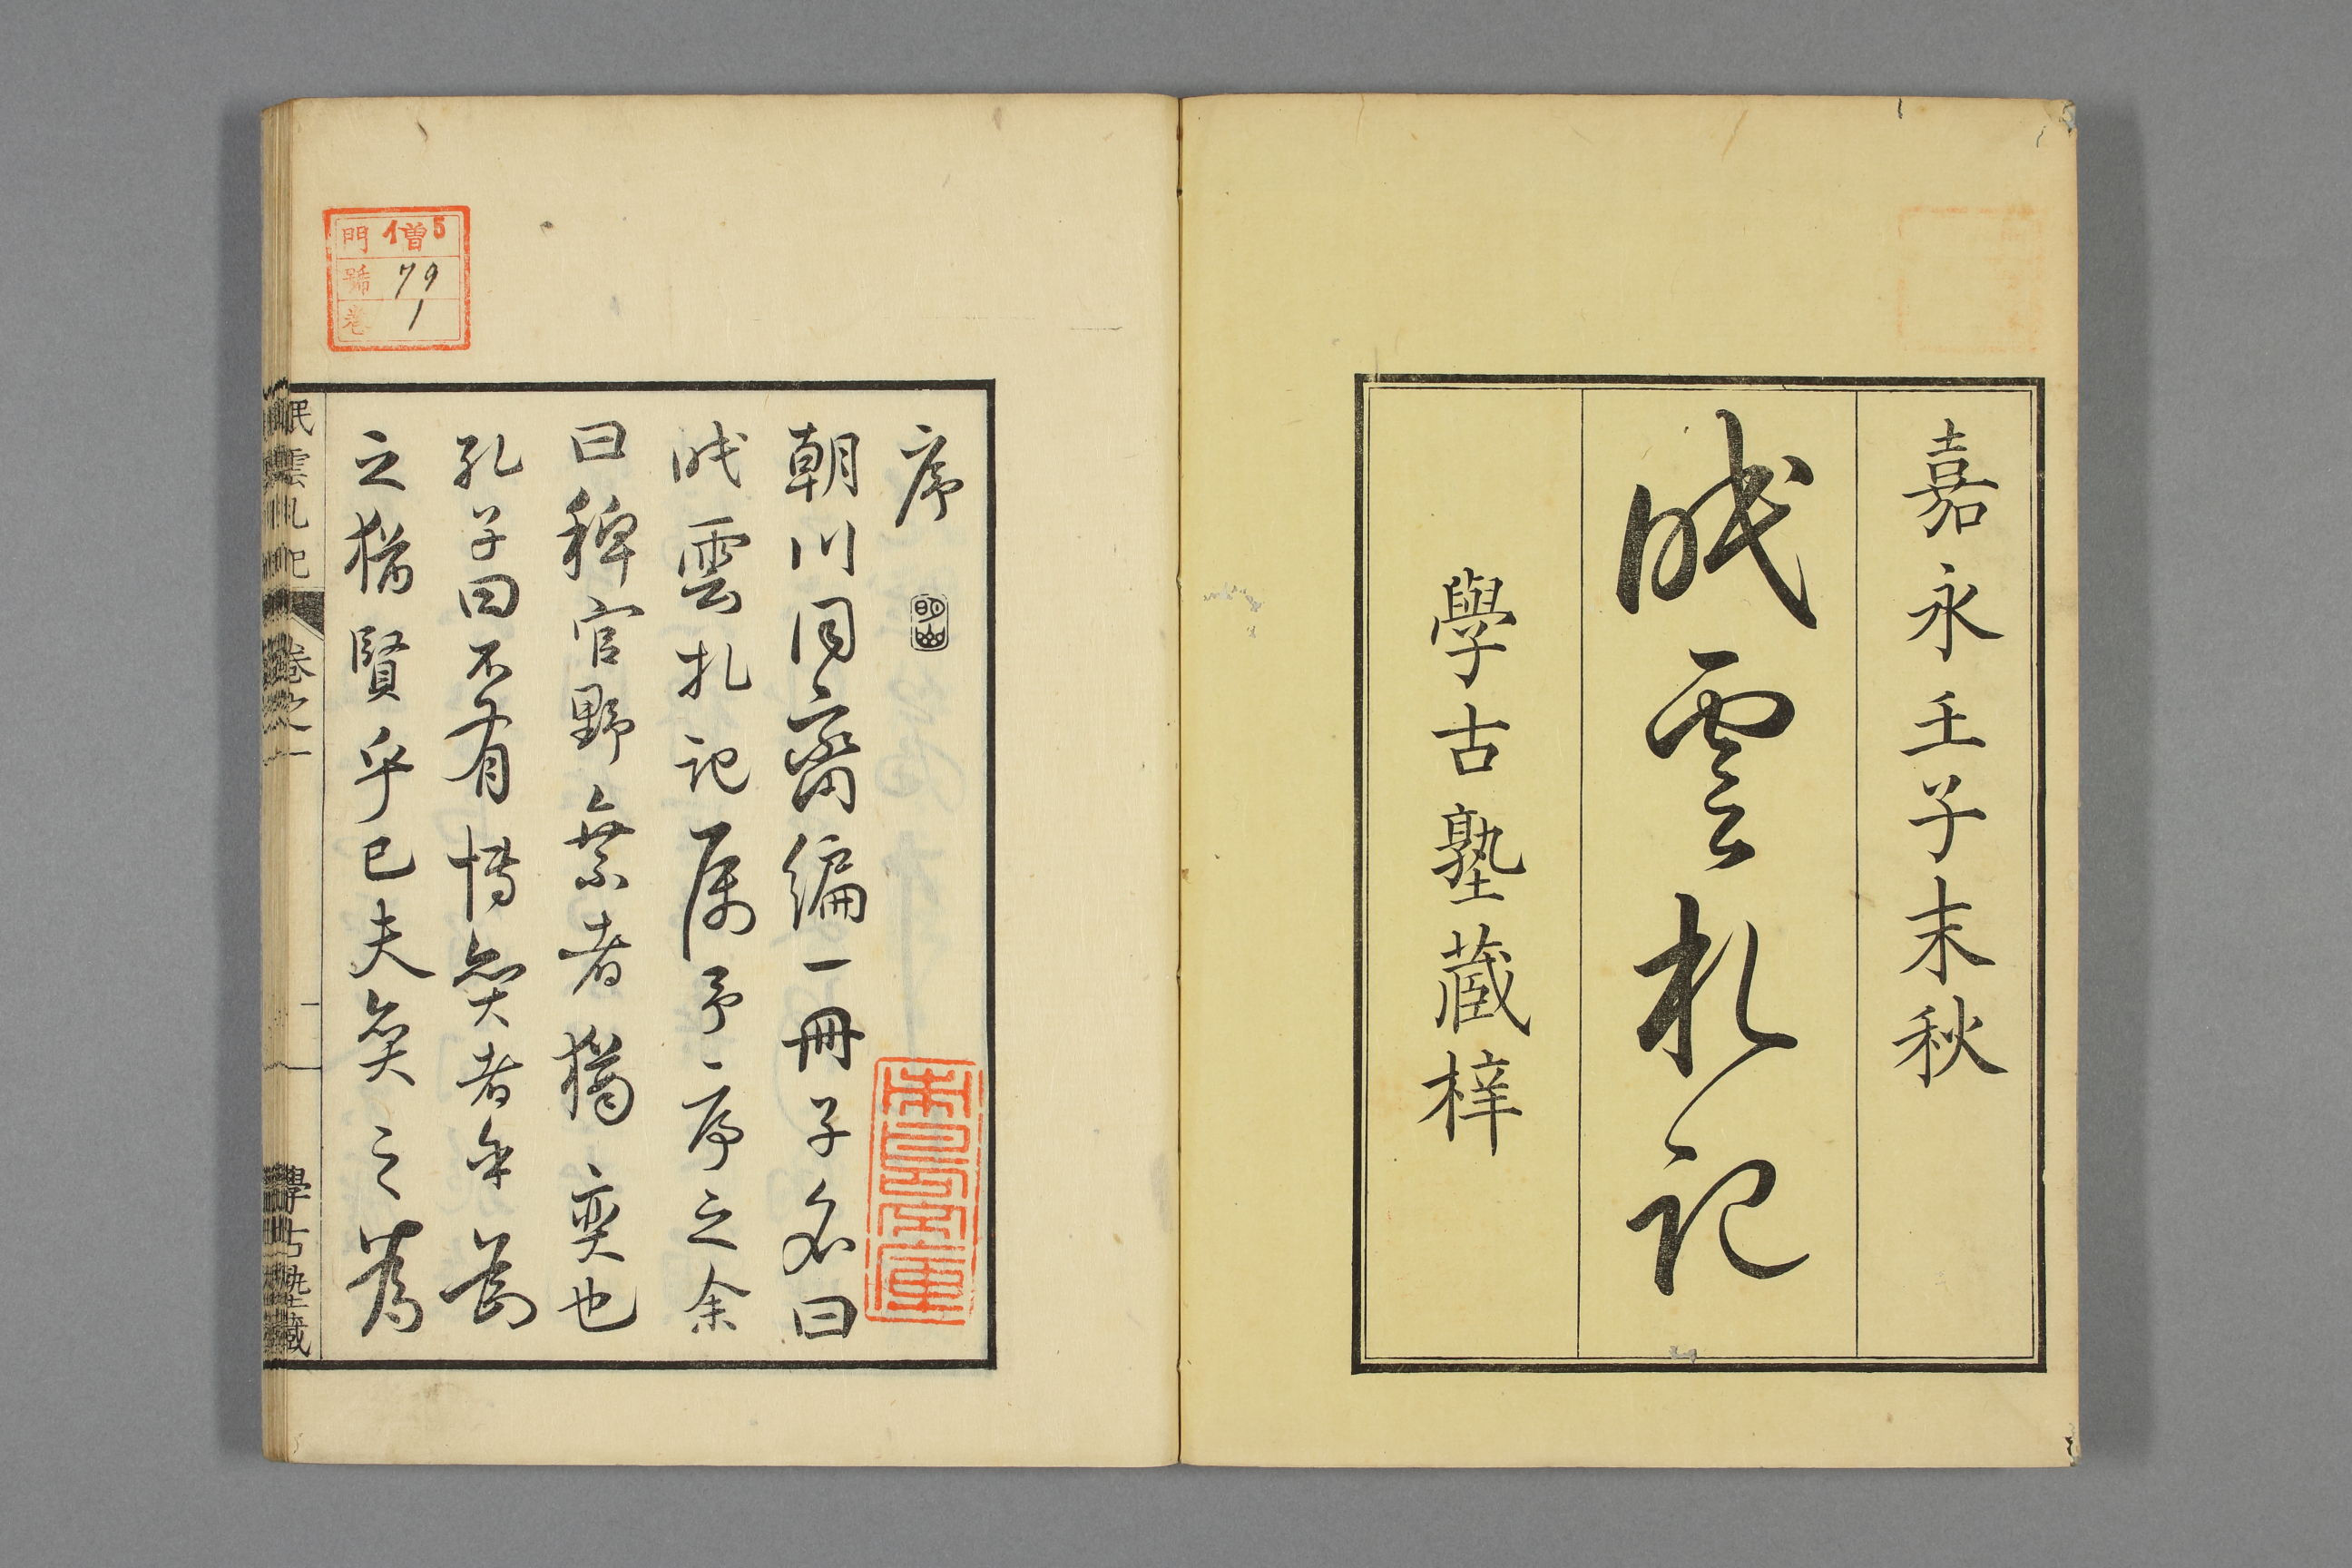 嘉永壬子末秋
眠雲札記
學古塾蔵梓
序
朝川同齋編一冊子名曰
眠雲札記属予一序之余
曰稗官野乗者猶奕也
孔子曰不有博奕者乎為
之猶賢乎已夫奕之為
眠雲札記 卷之一 一 學古塾藏
門 僧5
號 79
卷 1